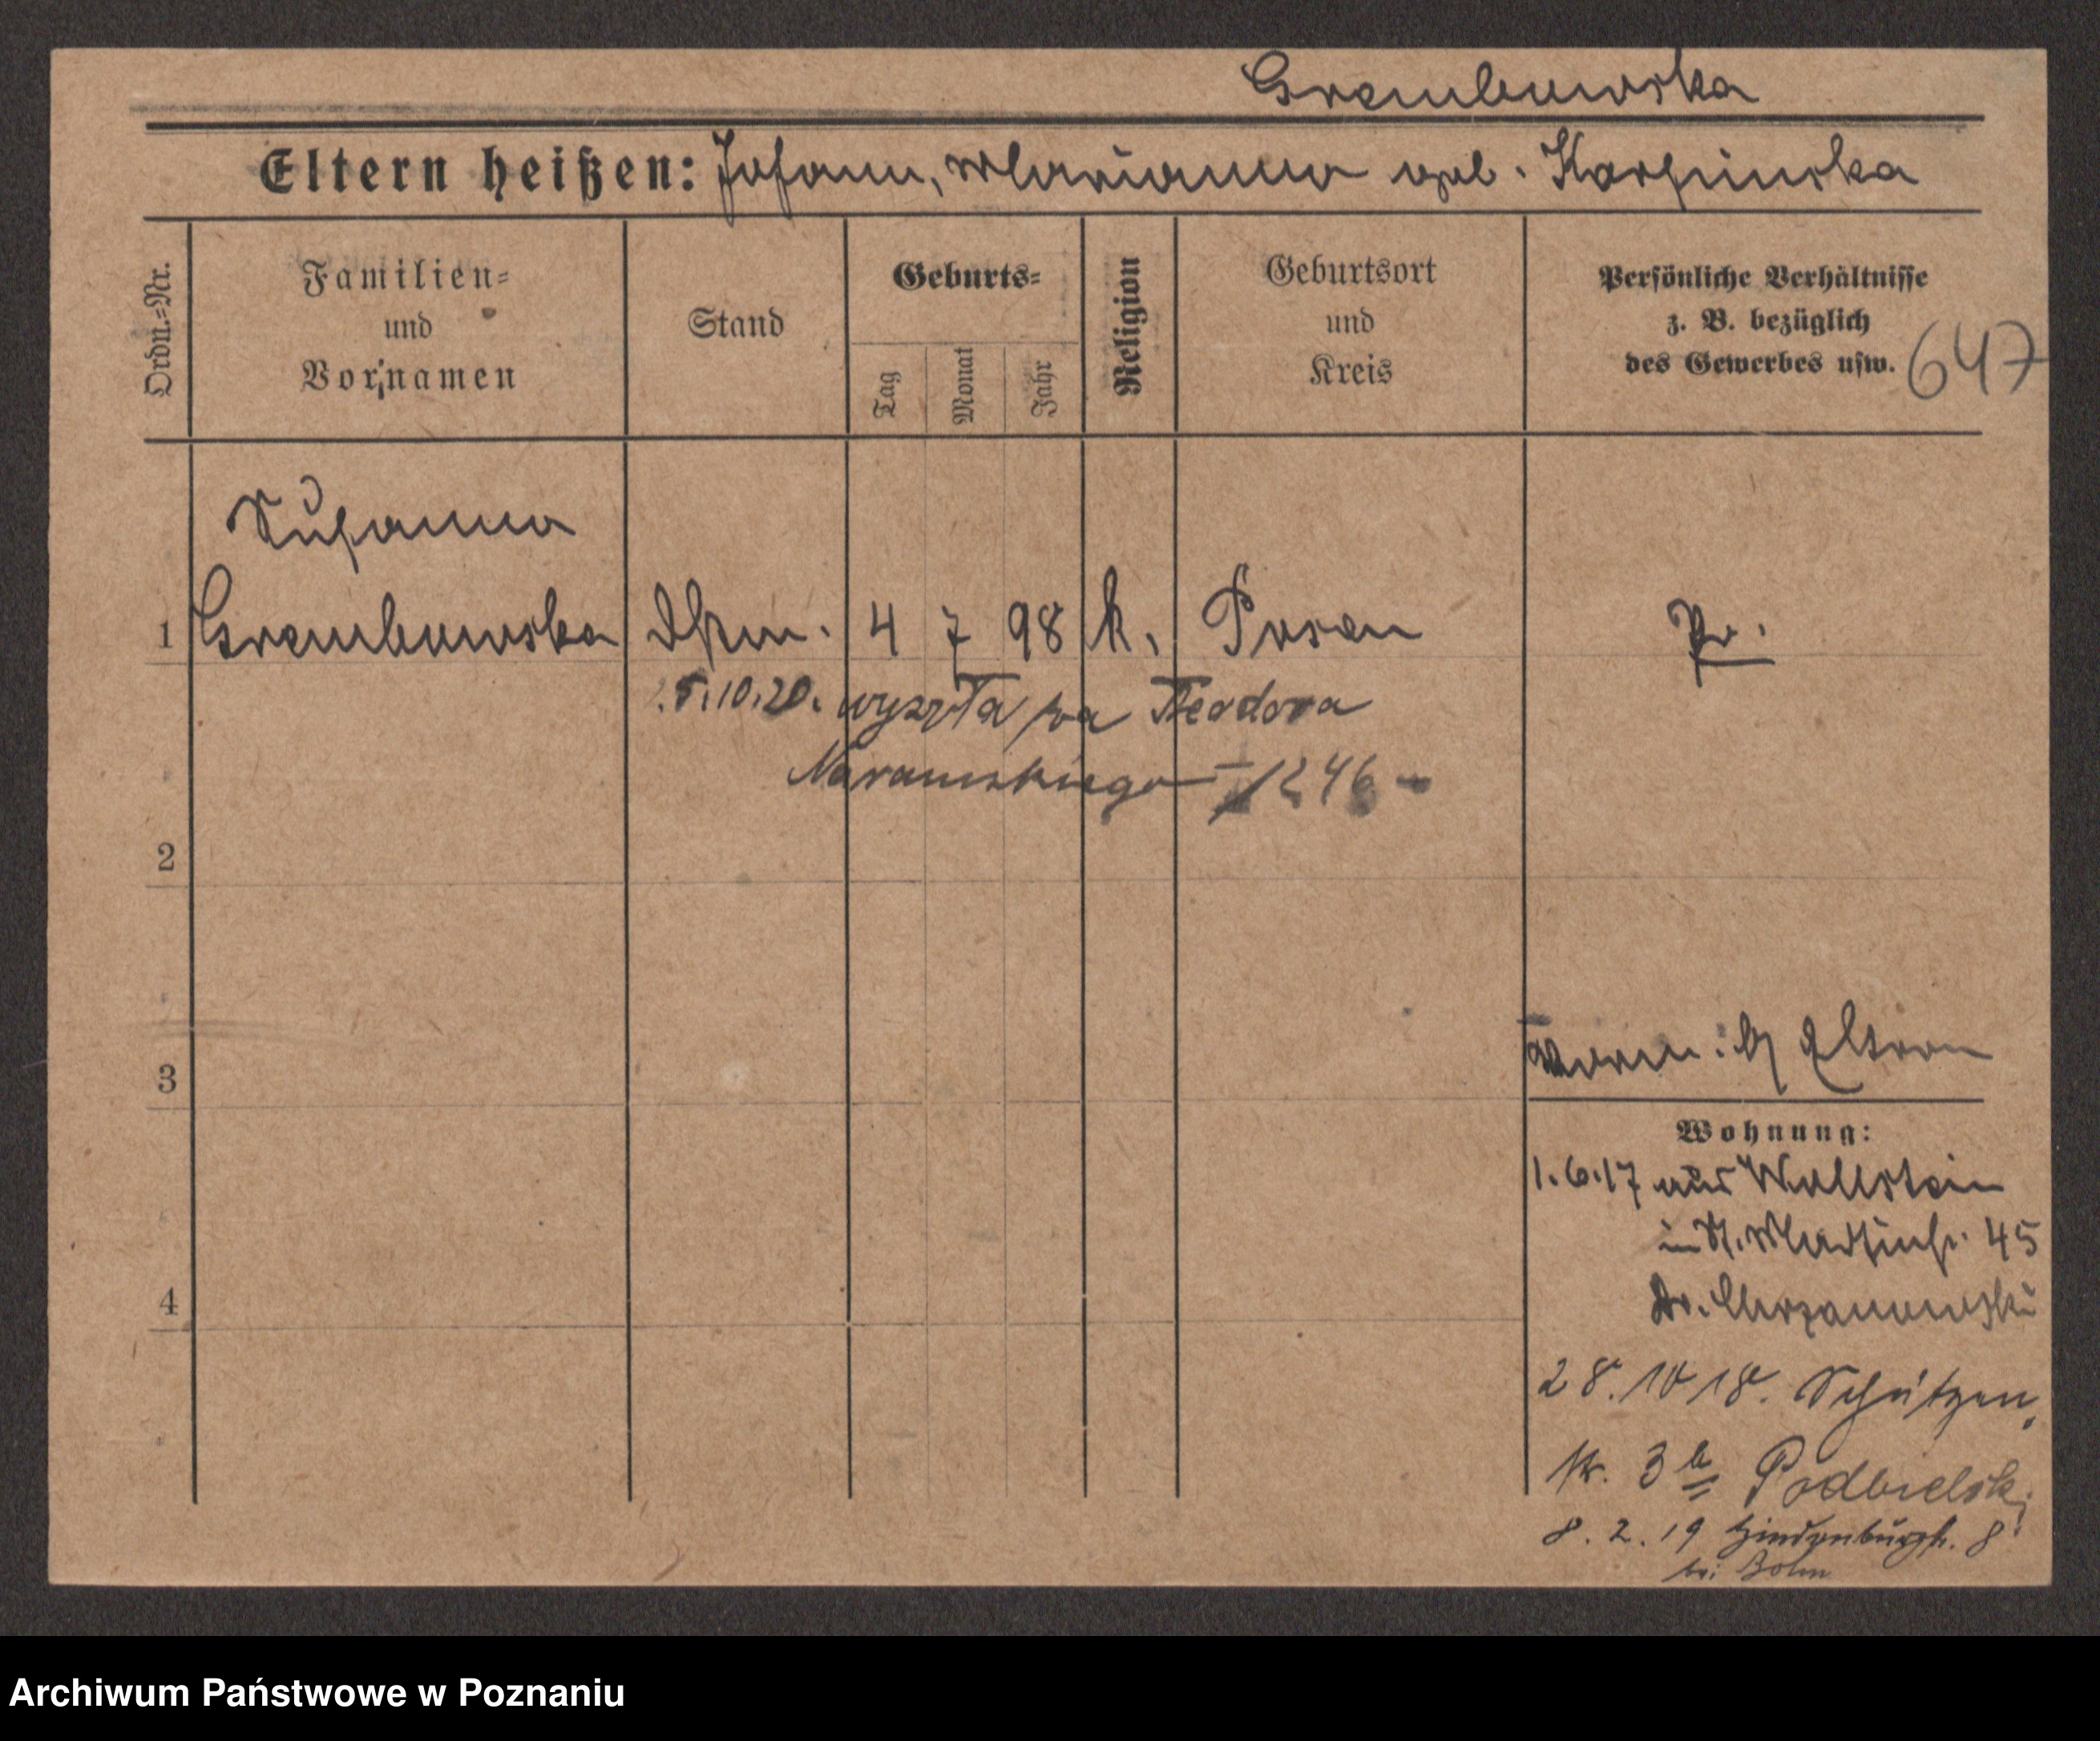 Grembowska
Eltern heißen: Johann, Marianna geb. Karpinska
Ordn.=Nr.
Familien=
und
Vornamen
Stand
Geburts=
Tag
Monat
Jahr
Religion
Geburtsort
und
Kreis
Persönliche Verhältnisse
z. B. bezüglich
des Gewerbes usw.
647
Susanna
1 Grembowska 4 7 98 k. Posen Pr.
5.10.20. wyszła za Teodora
1246
2
3
b/ Eltern
Wohnung:
1.6.17 aus Wollstein
in St. Martinstr. 45
Dr. Chrzanowski
4
28.10 18. Schützen
str. 3 b Podbielski
8.2.19 Hindenburgstr. 8
bei Bohm
Archiwum Państwowe w Poznaniu